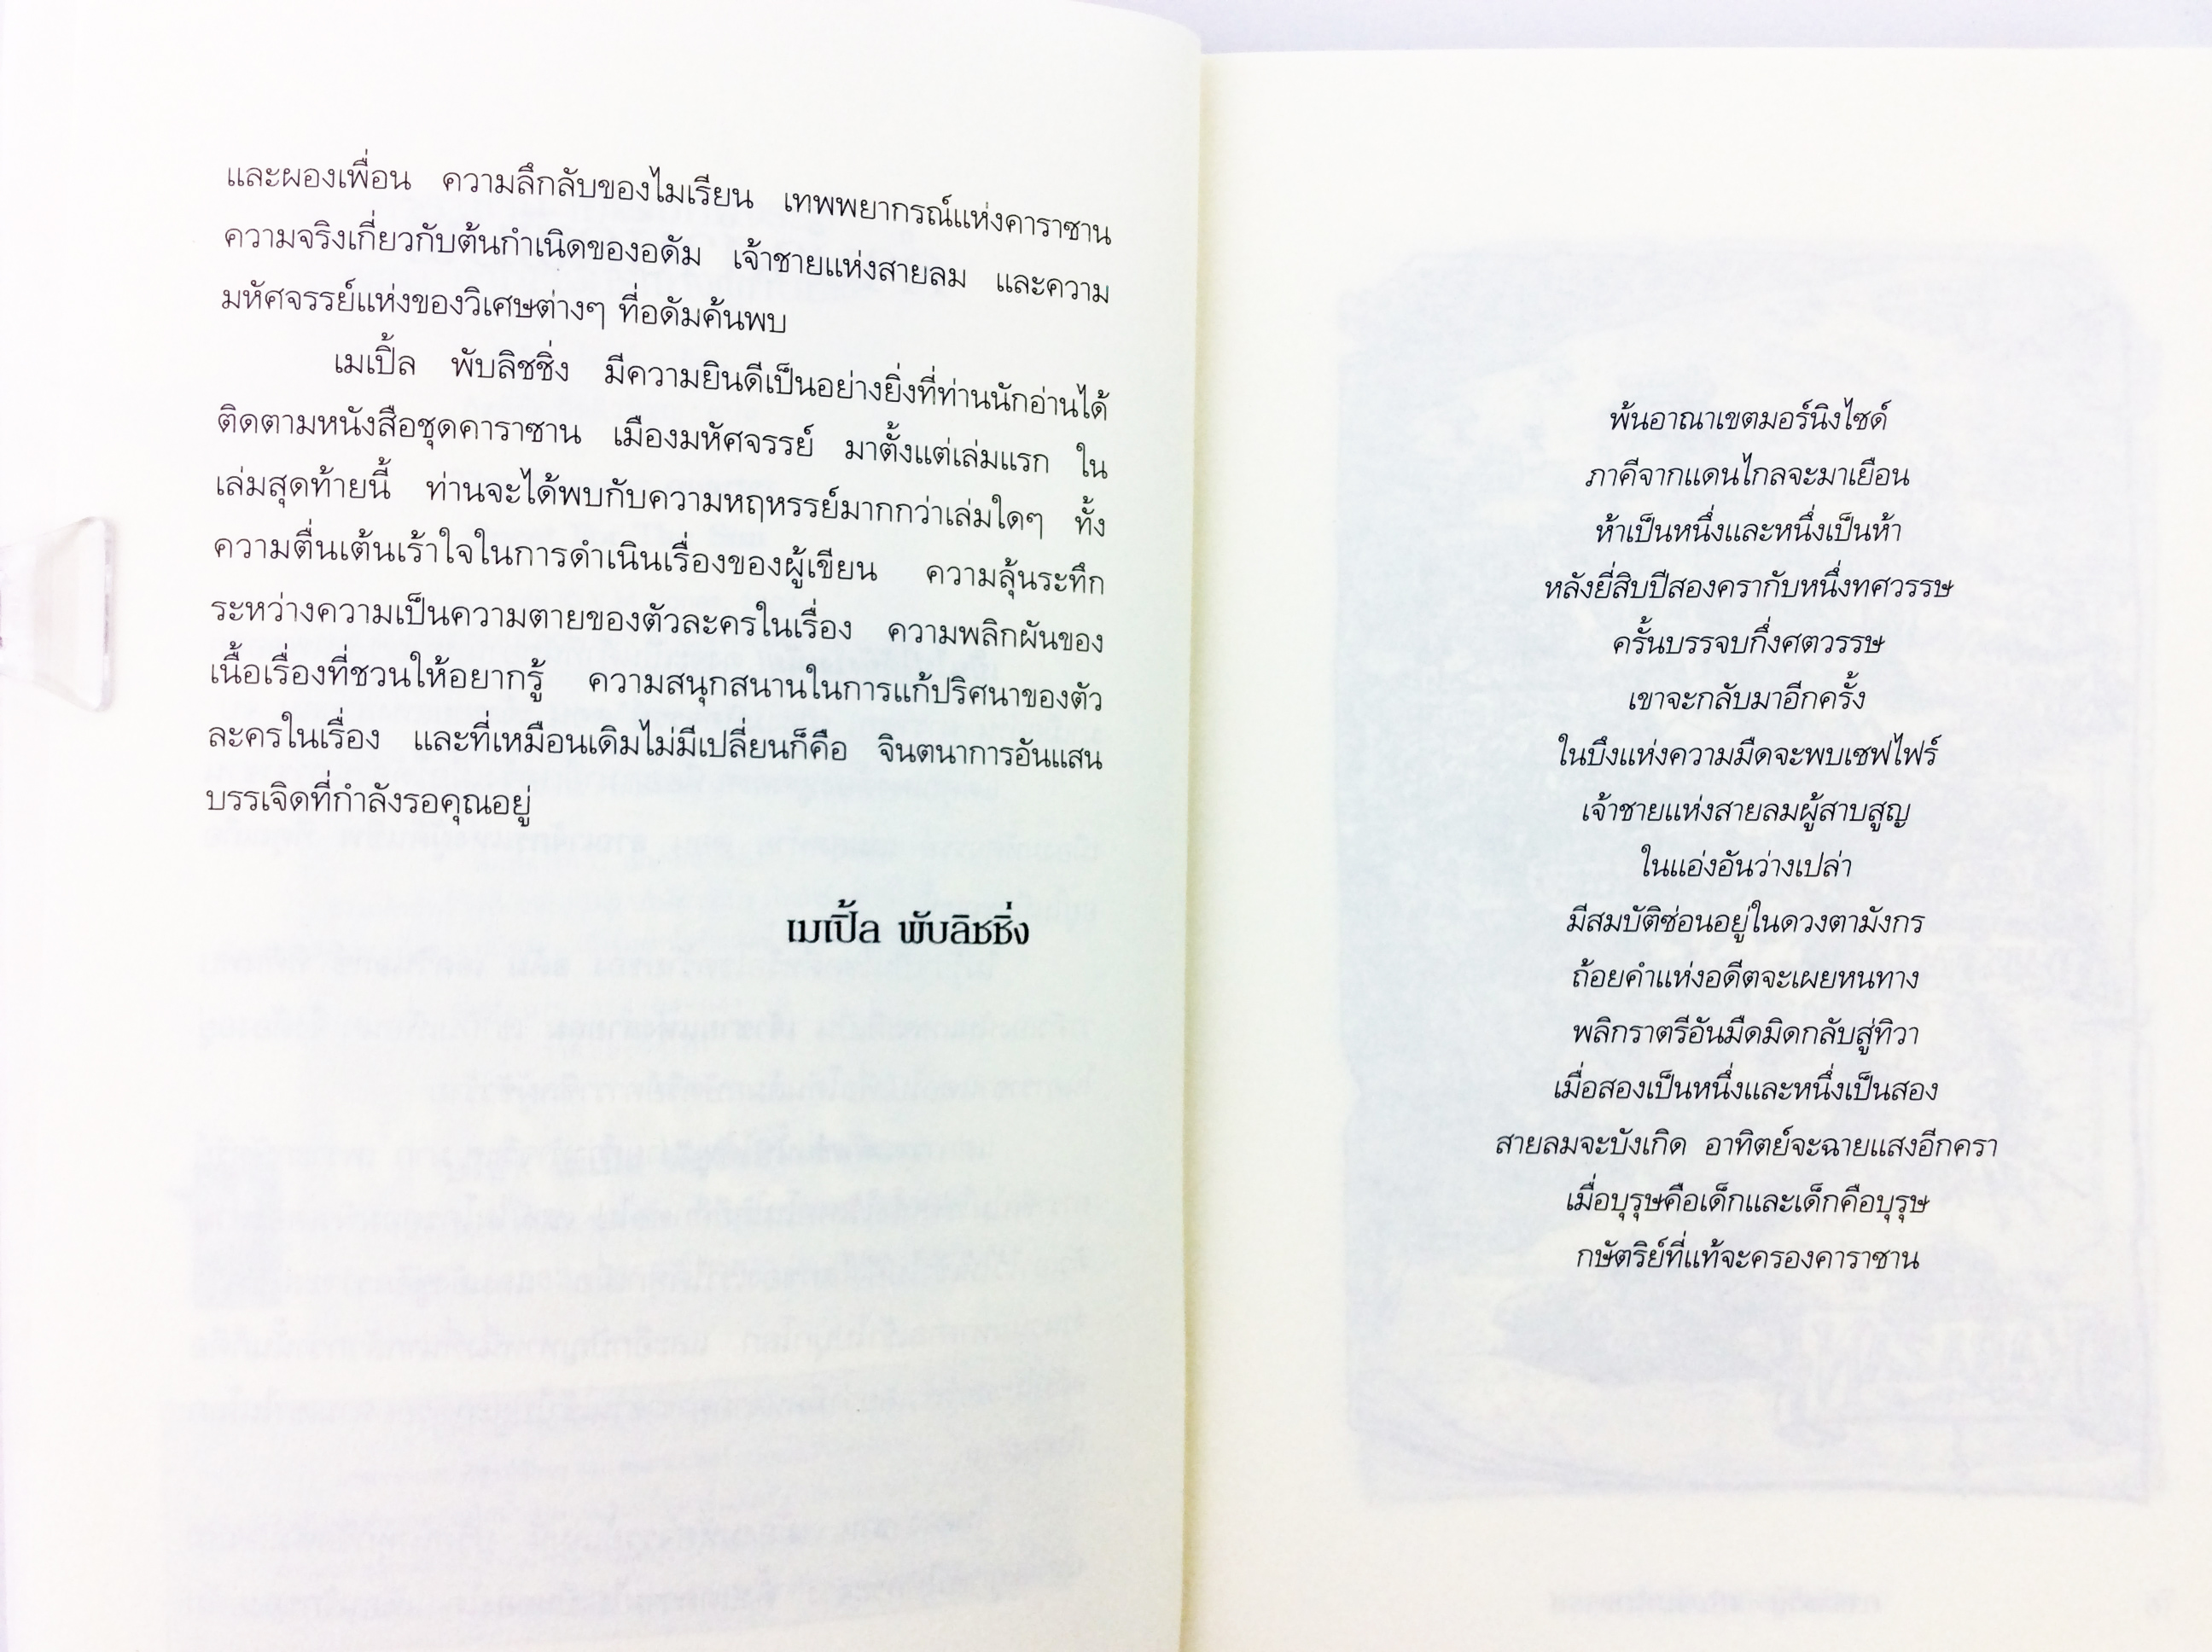 และผองเพื่อน ความลึกลับของไมเรียน เทพพยากรณ์แห่งคาราซาน
ความจริงเกี่ยวกับต้นกำเนิดของอดัม เจ้าชายแห่งสายลม และความ
มหัศจรรย์แห่งของวิเศษต่างๆ ที่อดัมค้นพบ
เมเปิ้ล พับลิชชิ่ง มีความยินดีเป็นอย่างยิ่งที่ท่านนักอ่านได้
ติดตามหนังสือชุดคาราซาน เมืองมหัศจรรย์ มาตั้งแต่เล่มแรก ใน
เล่มสุดท้ายนี้ ท่านจะได้พบกับความหฤหรรย์มากกว่าเล่มใดๆ ทั้ง
ความตื่นเต้นเร้าใจในการดำเนินเรื่องของผู้เขียน ความลุ้นระทึก
ระหว่างความเป็นความตายของตัวละครในเรื่อง ความพลิกผันของ
เนื้อเรื่องที่ชวนให้อยากรู้ ความสนุกสนานในการแก้ปริศนาของตัว
ละครในเรื่อง และที่เหมือนเดิมไม่มีเปลี่ยนก็คือ จินตนาการอันแสน
บรรเจิดที่กำลังรอคุณอยู่
เมเปิ้ล พับลิชชิ่ง
พ้นอาณาเขตมอร์นิงไซด์
ภาคีจากแดนไกลจะมาเยือน
ห้าเป็นหนึ่งและหนึ่งเป็นห้า
หลังยี่สิบปีสองครากับหนึ่งทศวรรษ
ครั้นบรรจบกึ่งศตวรรษ
เขาจะกลับมาอีกครั้ง
ในบึงแห่งความมืดจะพบเซฟไฟร์
เจ้าชายแห่งสายลมผู้สาบสูญ
ในแอ่งอันว่างเปล่า
มีสมบัติซ่อนอยู่ในดวงตามังกร
ถ้อยคำแห่งอดีตจะเผยหนทาง
พลิกราตรีอันมืดมิดกลับสู่ทิวา
เมื่อสองเป็นหนึ่งและหนึ่งเป็นสอง
สายลมจะบังเกิด อาทิตย์จะฉายแสงอีกครา
เมื่อบุรุษคือเด็กและเด็กคือบุรุษ
กษัตริย์ที่แท้จะครองคาราซาน